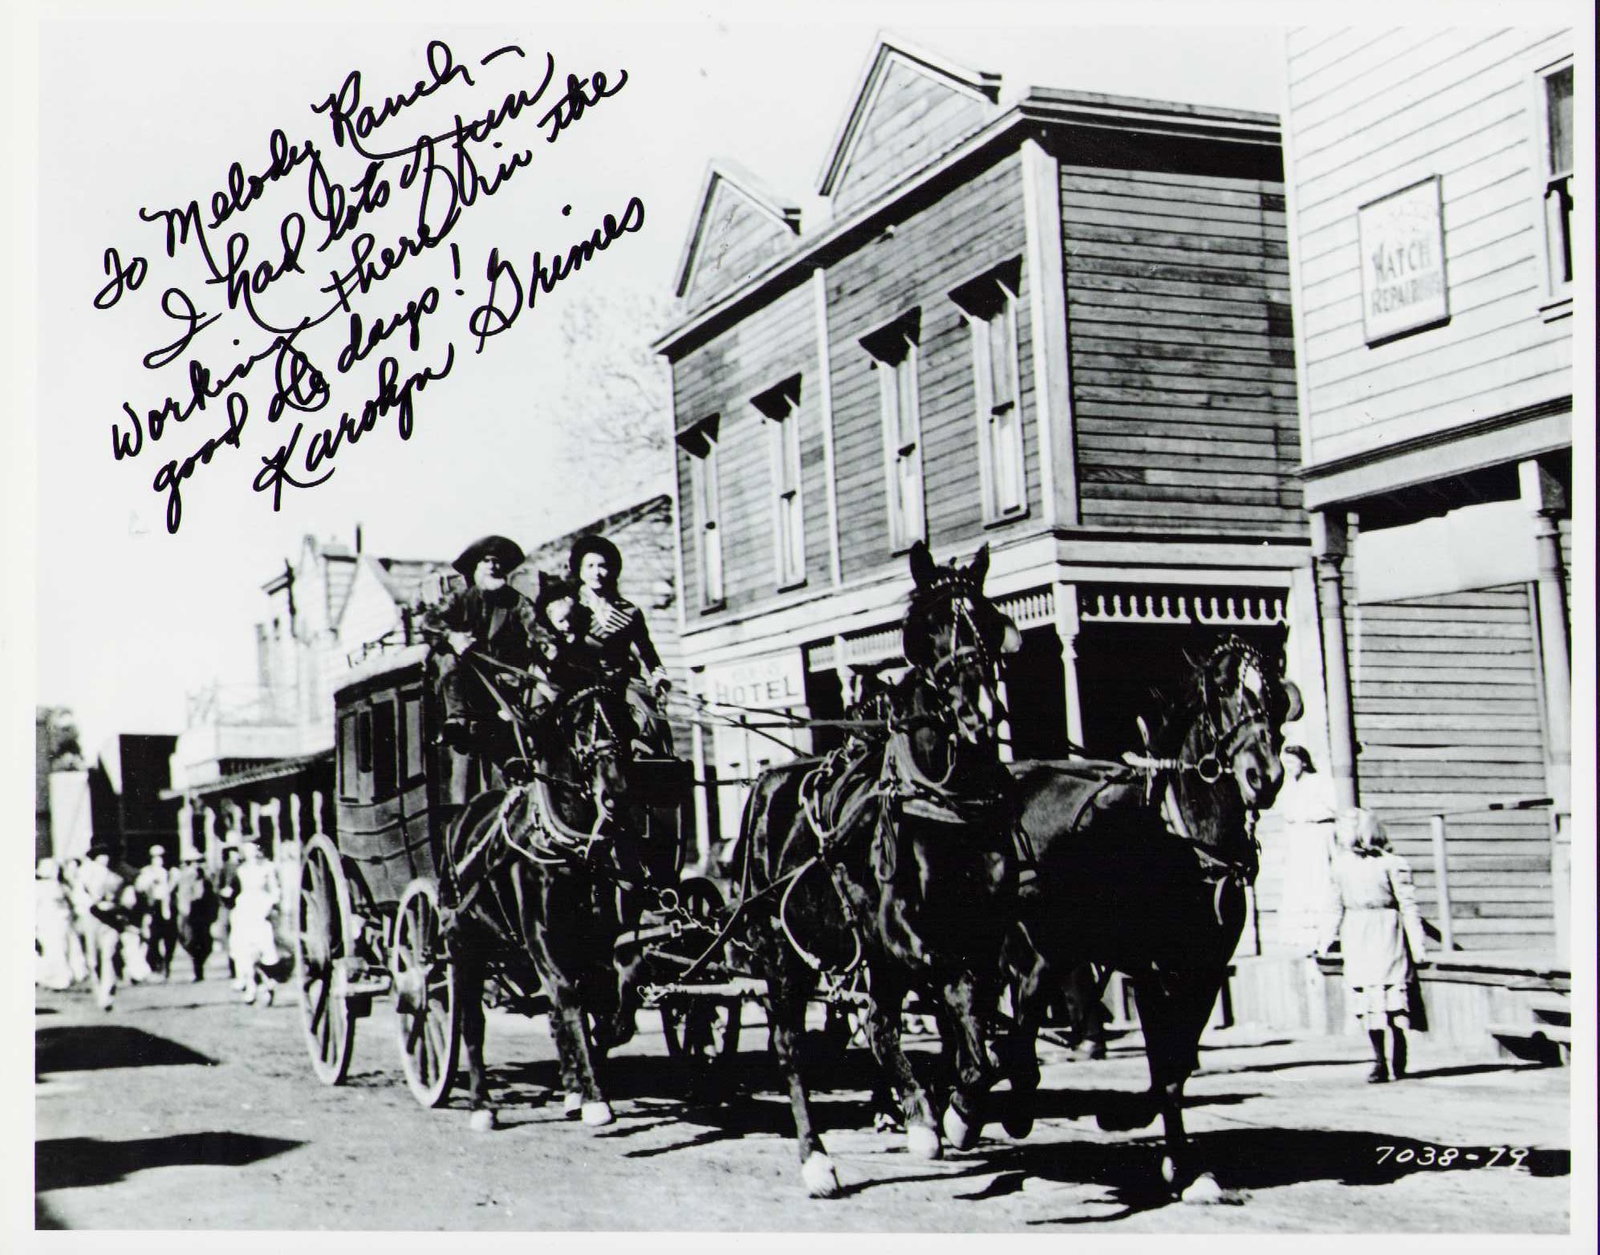 To Melody Ranch -
I had lots of fun
working there in the
good ole days!
Karolyn Grimes
WATCH
REPAIRING
HOTEL
7038-79